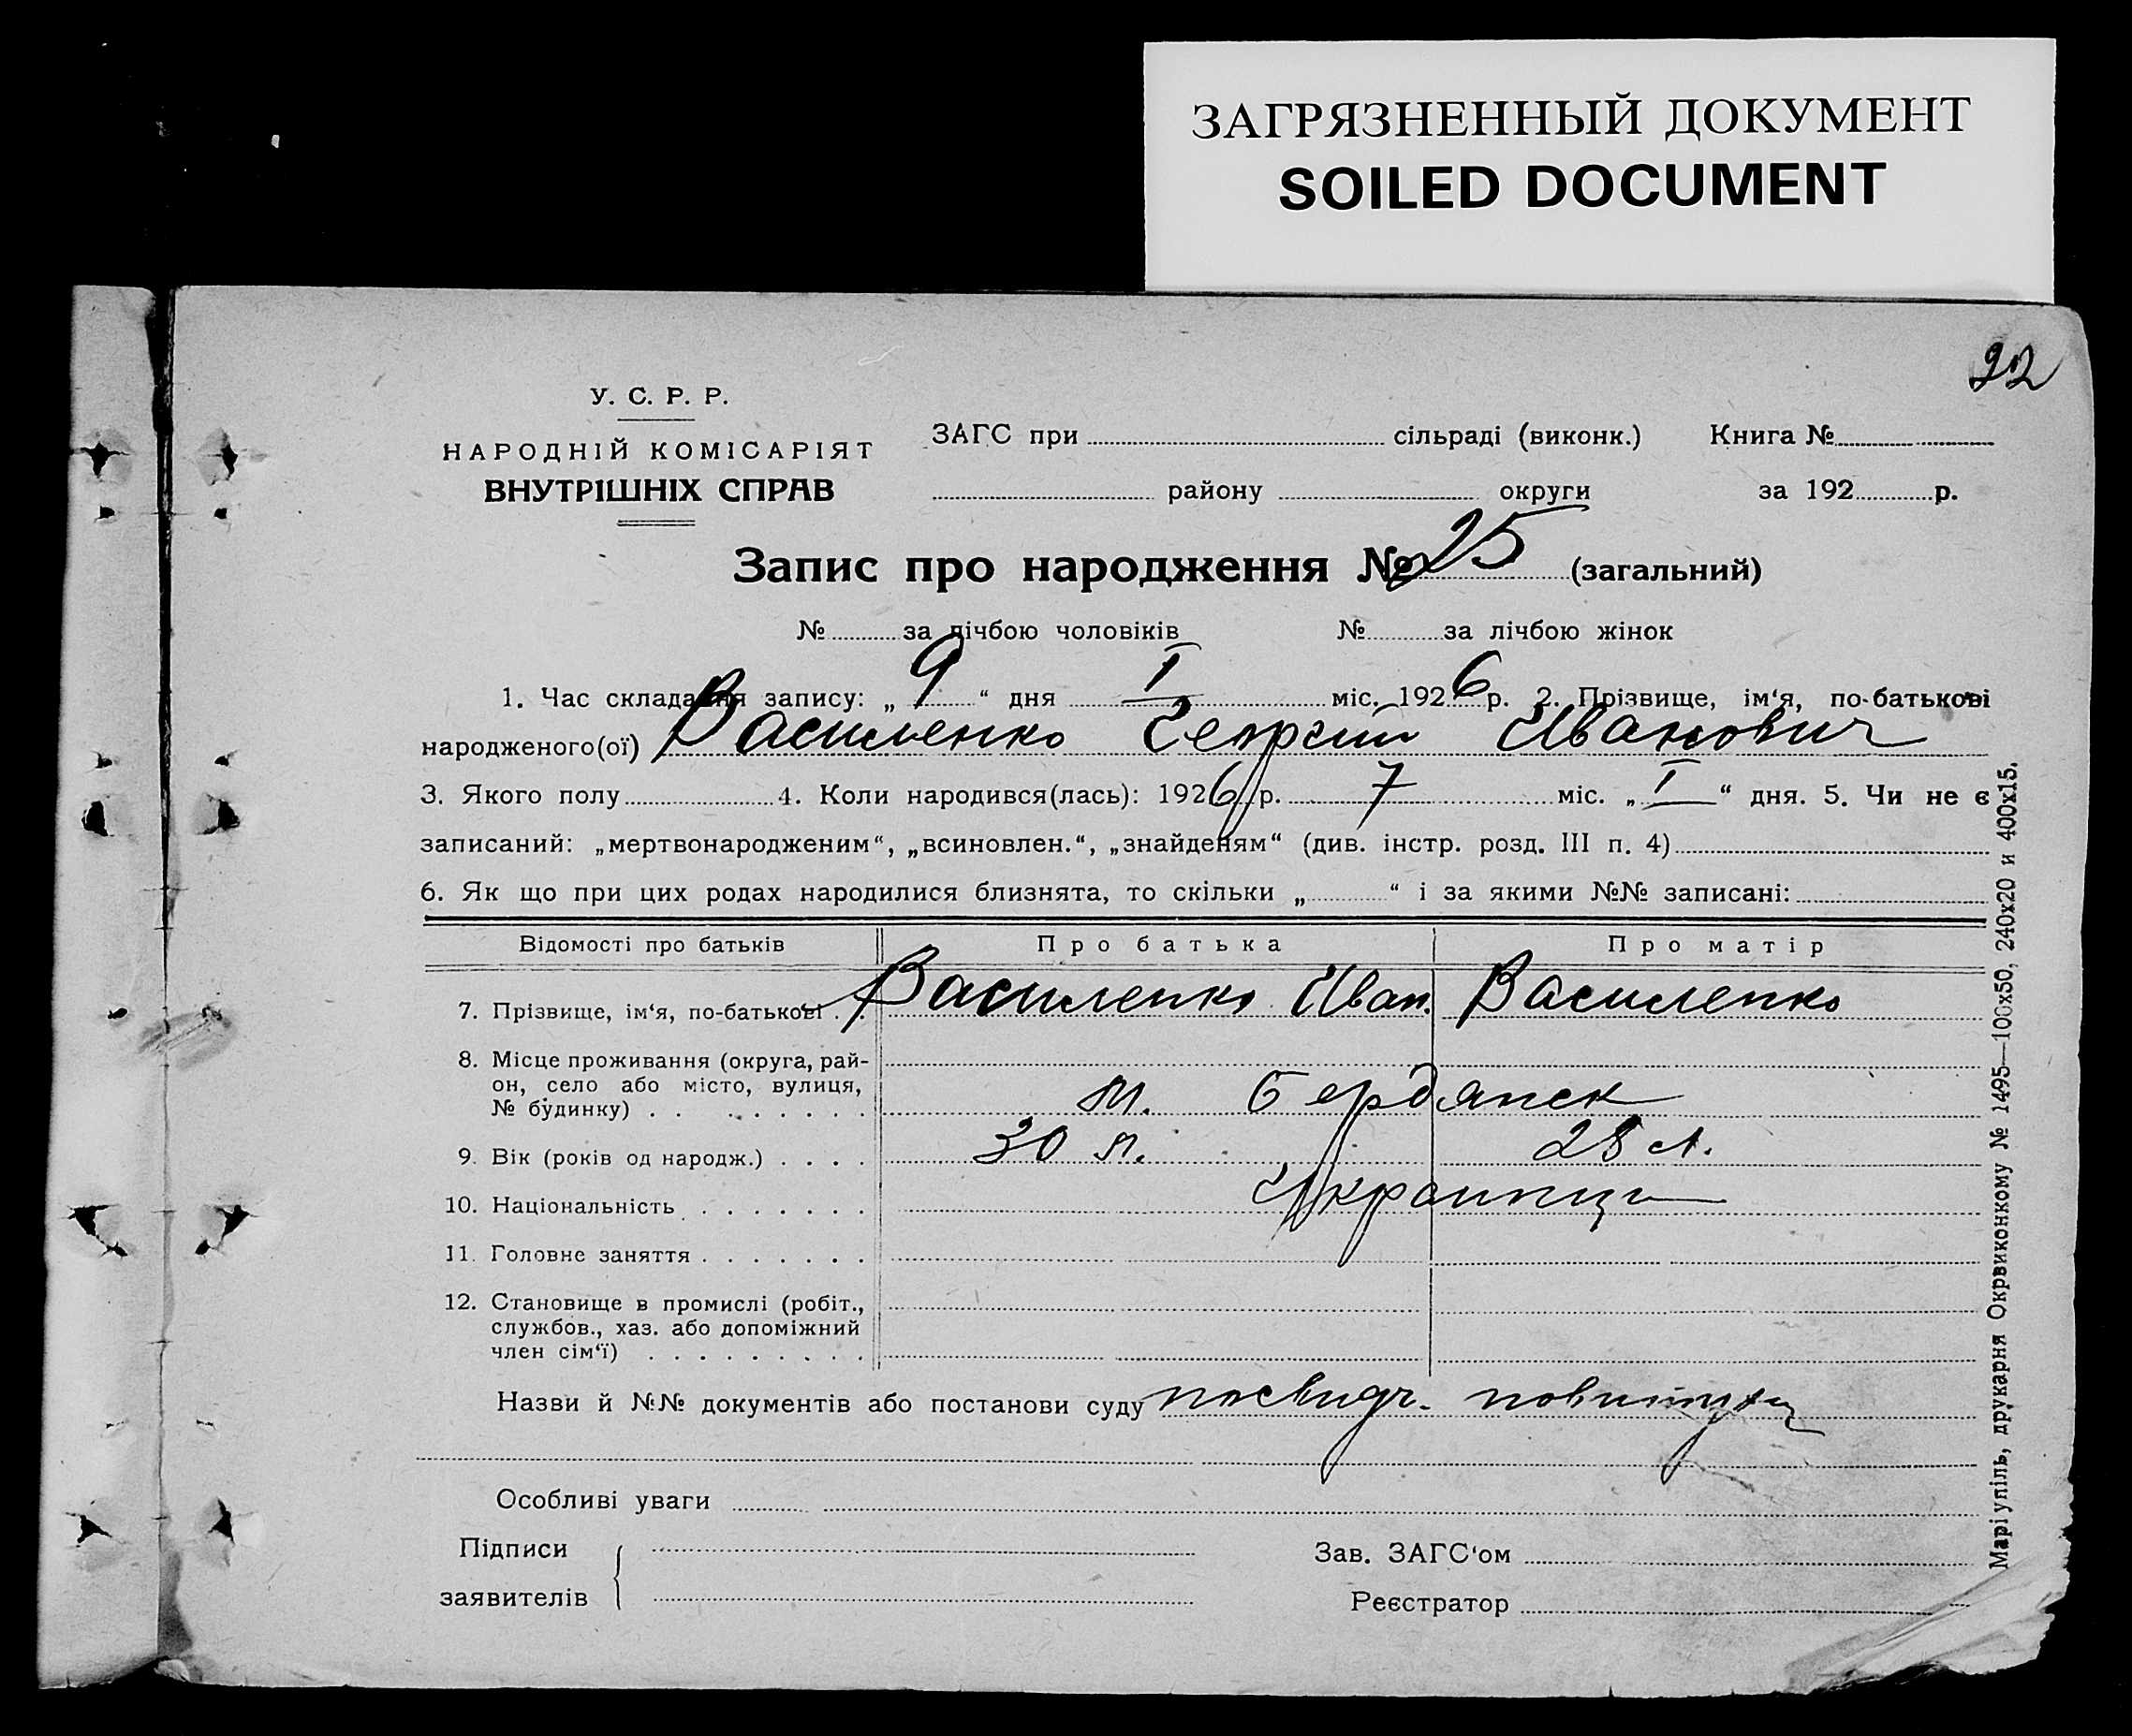 ЗАГРЯЗНЕННЫЙ ДОКУМЕНТ
SOILED DOCUMENT
22
У. С. Р. Р.
НАРОДНІЙ КОМІСАРІЯТ
ВНУТРІШНІХ СПРАВ
ЗАГС при сільраді (виконк.) Книга №
району округи за 192 р.
Запис про народження № 25 (загальний)
№ за лічбою чоловіків № за лічбою жінок
1. Час складання запису: „ 9 “ дня I міс. 1926 р. 2. Прізвище, ім‘я, по-батькові
народженого(ої) Василенко Георгий Иванович
3. Якого полу 4. Коли народився(лась): 1926 р. 7 міс. „ I “ дня. 5. Чи не є
записаний: „мертвонародженим“, „всиновлен.“, „знайденям“ (див. інстр. розд. III п. 4)
6. Як що при цих родах народилися близнята, то скільки „ “ і за якими №№ записані:
Відомості про батьків Про батька Про матір
7. Прізвище, ім‘я, по-батькові . . Василенко Иван. Василенко
8. Місце проживання (округа, рай-
он, село або місто, вулиця,
№ будинку) . . . . . . . . . м. Бердянск
9. Вік (років од народж.) . . . . 30 л. 28 л.
10. Національність . . . . . . . . Украинци
11. Головне заняття . . . . . . .
12. Становище в промислі (робіт.,
службов., хаз. або допоміжний
член сім‘ї) . . . . . . . . .
Назви й №№ документів або постанови суду посвидч.
Особливі уваги
Підписи
заявителів
Зав. ЗАГС‘ом
Реєстратор
Маріупіль, друкарня Окрвиконкому № 1495—100х50, 240х20 и 400х15.